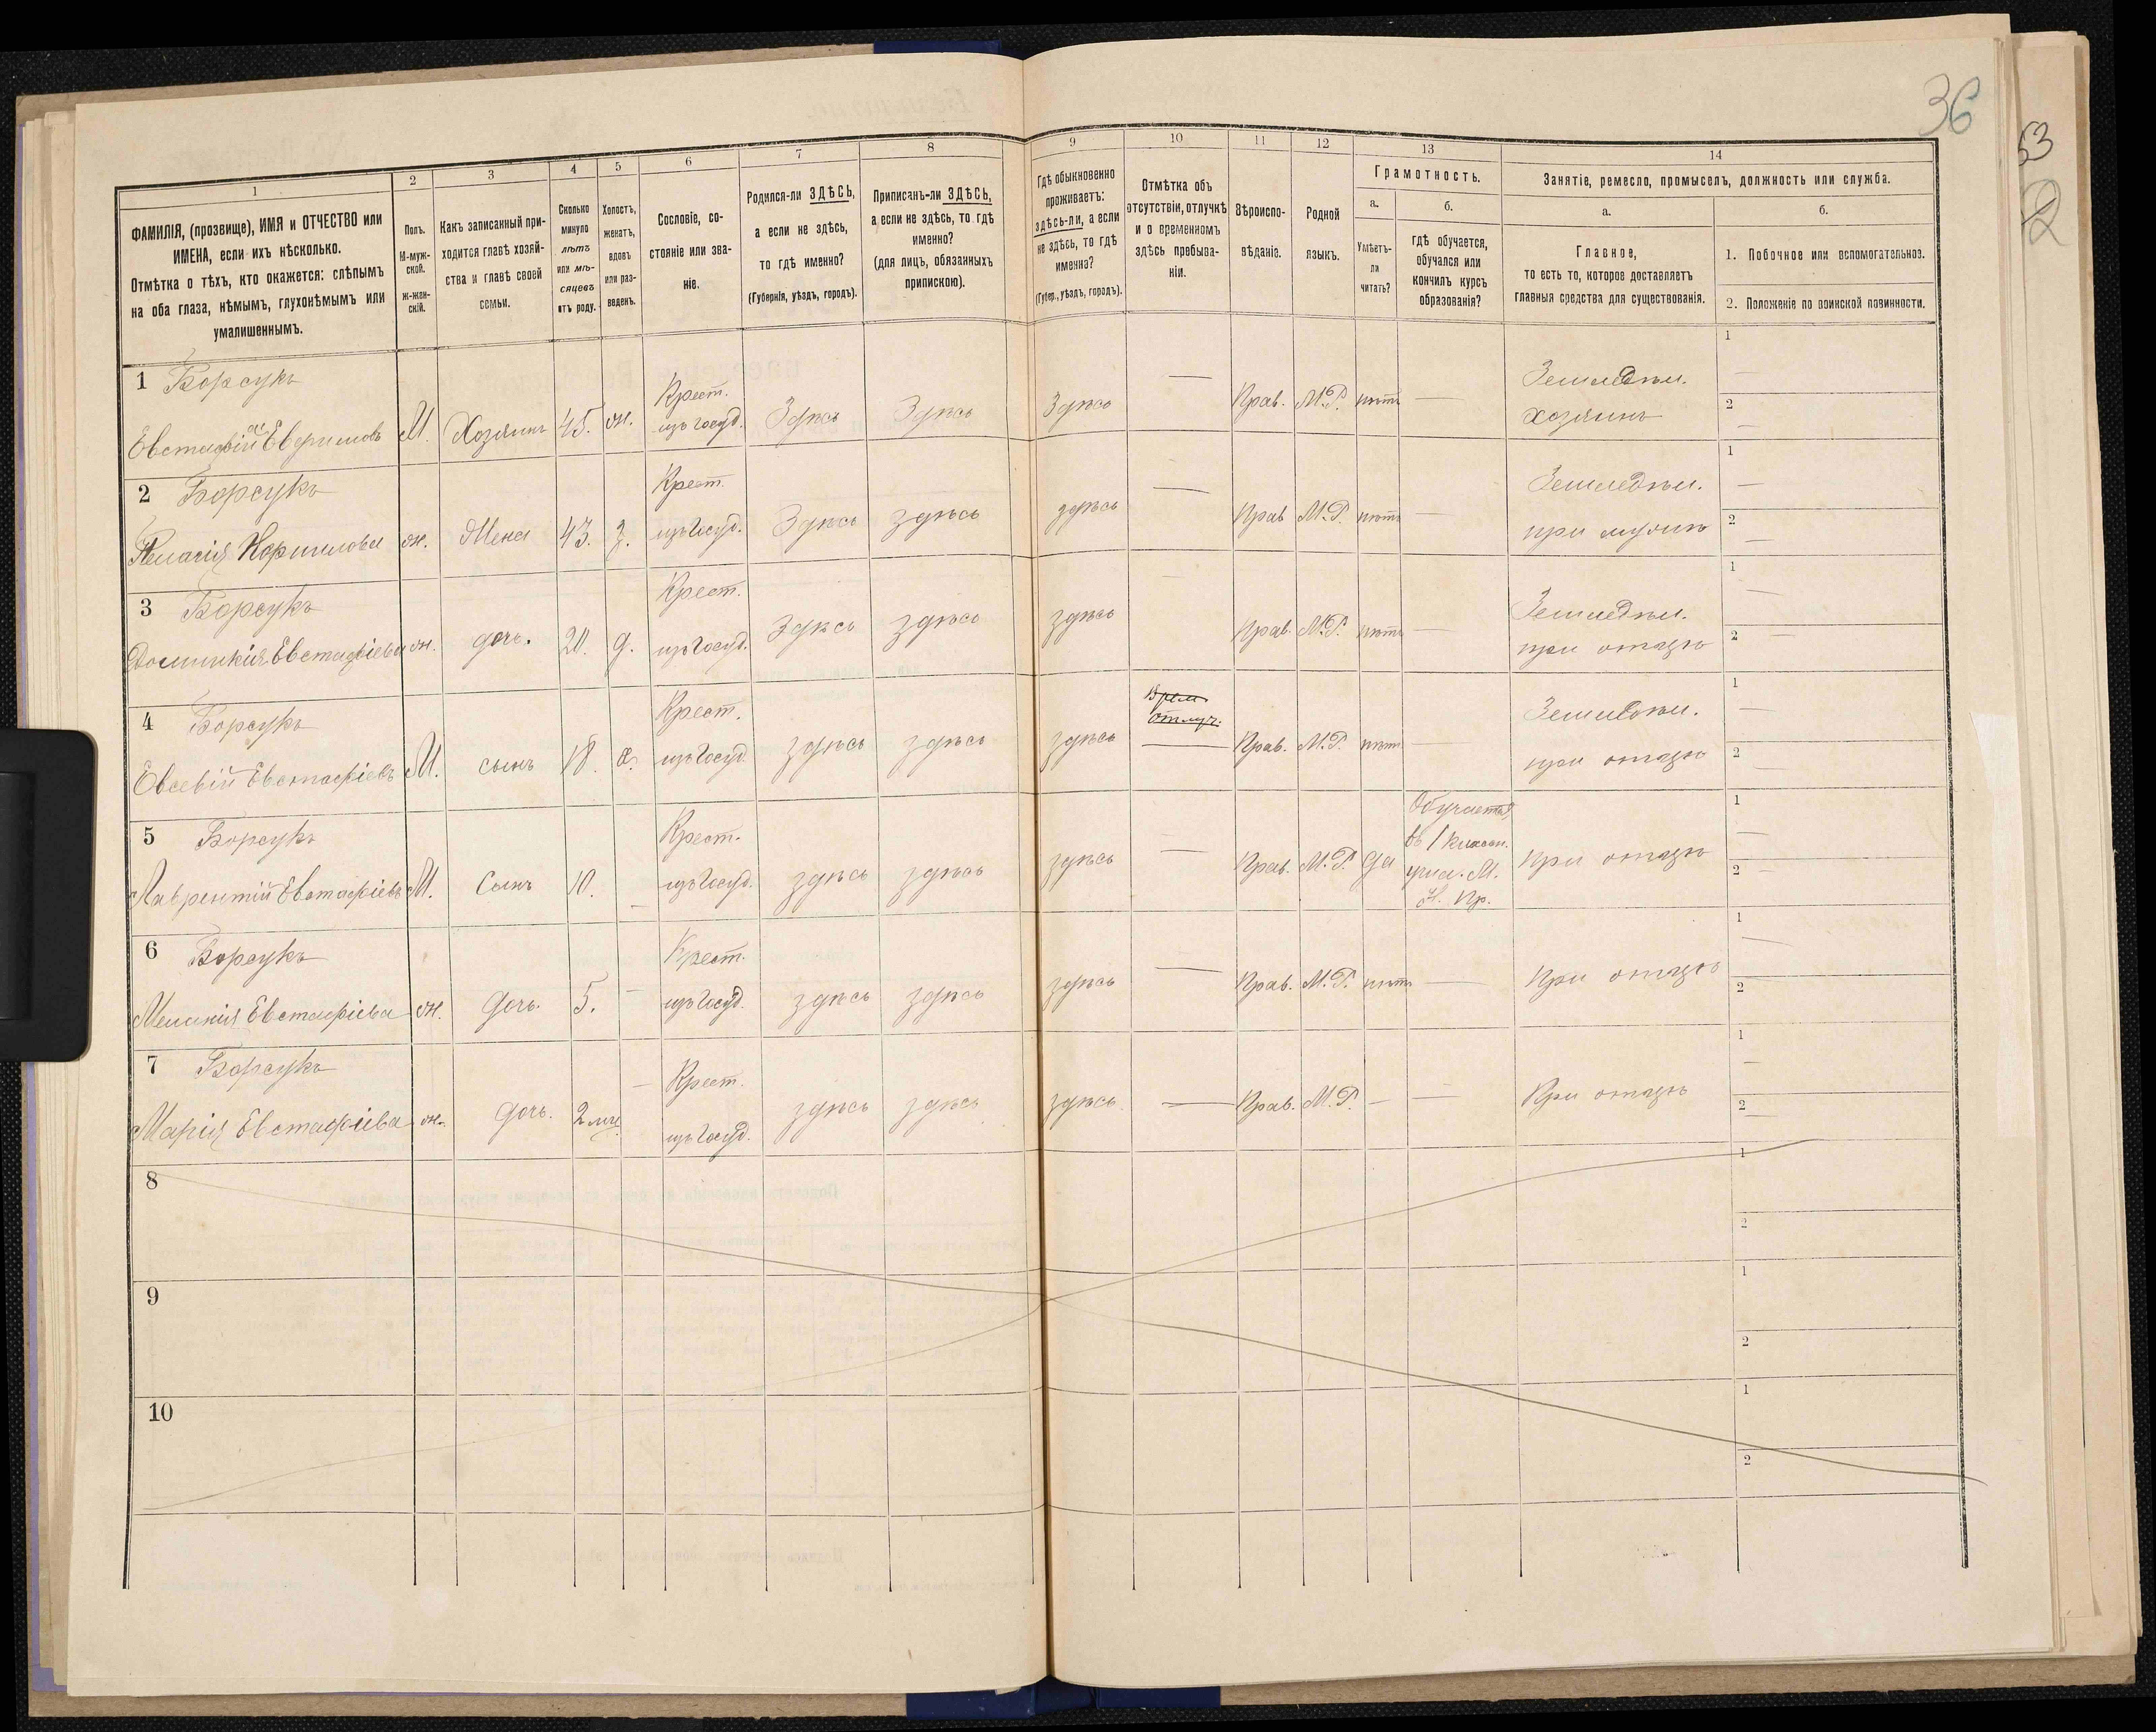 36
53
1 2 3 4 5 6 7 8 9 10 11 12 13 14
ФАМИЛІЯ, (прозвище), ИМЯ и ОТЧЕСТВО или
ИМЕНА, если ихъ нѣсколько.
Отмѣтка о тѣхъ, кто окажется: слѣпымъ
на оба глаза, нѣмымъ, глухонѣмымъ или
умалишеннымъ.
Полъ.
М-муж-
ской.
Ж-жен-
скій.
Какъ записанный при-
ходится главѣ хозяй-
ства и главѣ своей
семьи.
Сколько
минуло
лѣтъ
или мѣ-
сяцевъ
отъ роду.
Холостъ,
женатъ,
вдовъ
или раз-
веденъ.
Сословіе, со-
стояніе или зва-
ніе.
Родился-ли ЗДѢСЬ,
а если не здѣсь,
то гдѣ именно?
(Губернія, уѣздъ, городъ).
Приписанъ-ли ЗДѢСЬ,
а если не здѣсь, то гдѣ
именно?
(для лицъ, обязанныхъ
припискою).
Гдѣ обыкновенно
проживаетъ:
здѣсь-ли, а если
не здѣсь, то гдѣ
именно?
(Губер., уѣздъ, городъ).
Отмѣтка объ
отсутствіи, отлучкѣ
и о временномъ
здѣсь пребыва-
ніи.
Вѣроиспо-
вѣданіе.
Родной
языкъ.
Грамотность.
а.
Умѣетъ-
ли
читать?
б.
гдѣ обучается,
обучался или
кончилъ курсъ
образованія?
Занятіе, ремесло, промыселъ, должность или служба.
а.
Главное,
то есть то, которое доставляетъ
главныя средства для существованія.
б.
1. Побочное или вспомогательное.
2. Положеніе по воинской повинности.
1 Борсукъ
Евстафій Евфимовъ М. Хозяинъ 45. ж. Крест. изъ госуд. Здѣсь Здѣсь Здѣсь — Прав. М.Р. нѣтъ — Земледѣл. хозяинъ 1 — 2 —
2 Борсукъ
Пелагія Корнилова ж. Жена 43. з. Крест. изъ госуд. Здѣсь здѣсь здѣсь — Прав М.Р. нѣтъ — Земледѣл. при мужѣ 1 — 2 —
3 Борсукъ
Домникія Евстафіева ж. дочь. 20. д. Крест. изъ госуд. Здѣсь здѣсь здѣсь — Прав. М.Р. нѣтъ — Земледѣл. при отцѣ 1 — 2
4 Борсукъ
Евсевій Евстафіевъ М. сынъ 18. х. Крест. изъ госуд. здѣсь здѣсь здѣсь Врем. отлуч. — Прав. М.Р. нѣт — Земледѣл. при отцѣ 1 — 2 —
5 Борсукъ
Лаврентій Евстафіевъ М. Сынъ 10. — Крест. изъ госуд. здѣсь здѣсь здѣсь — Прав. М.Р. да Обучается
въ 1 класн.
учил. М.
Н. Пр.
при отцѣ 1 — 2 —
6 Борсукъ
Меланія Евстафіева ж. дочь. 5. — Крест. изъ госуд. здѣсь здѣсь здѣсь — Прав. М.Р. нѣтъ — При отцѣ 1 — 2
7 Борсукъ
Марія Евстафіева ж. дочь. 2 мц. — Крест. изъ госуд. здѣсь здѣсь здѣсь. — Прав. М.Р. — — При отцѣ 1 — 2 —
8 1 2
9 1 2
10 1 2